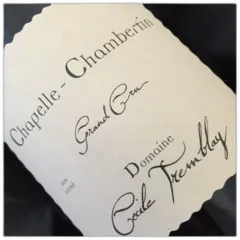 Chapelle - Chambertin
Grand Cru
Domaine
Cécile Tremblay